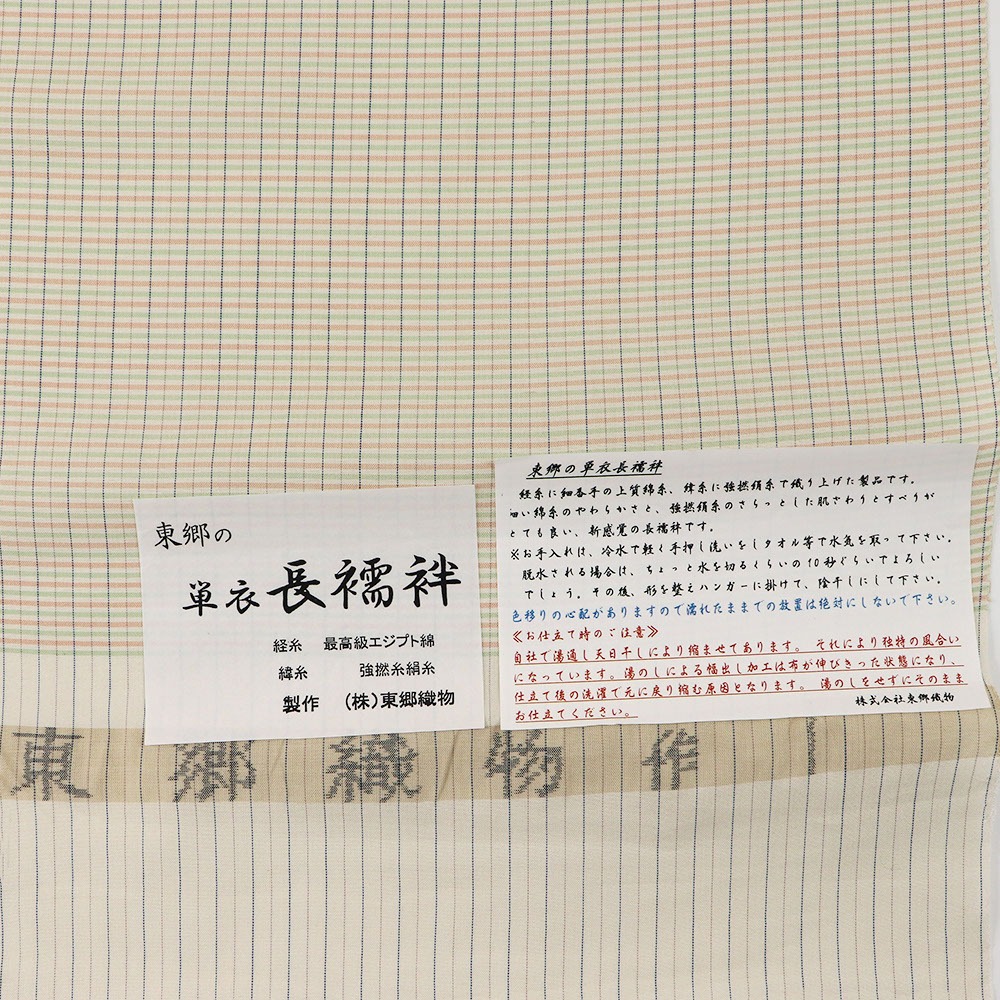 東郷の
単衣 長襦袢
経糸 最高級エジプト綿
緯糸 強撚糸絹糸
製作 (株)東郷織物
東郷の単衣長襦袢
経糸に細番手の上質綿糸、緯糸に強撚絹糸で織り上げた製品です。
細い綿糸のやわらかさと、強撚絹糸のさらっとした肌さわりとすべりが
とても良い、新感覚の長襦袢です。
※お手入れは、冷水で軽く手押し洗いをしタオル等で水気を取って下さい。
脱水される場合は、ちょっと水を切るくらいの10秒ぐらいでよろしい
でしょう。その後、形を整えハンガーに掛けて、陰干しにして下さい。
色移りの心配がありますので濡れたままでの放置は絶対にしないで下さい。
≪お仕立て時のご注意≫
自社で湯通し天日干しにより縮ませてあります。 それにより独特の風合い
になっています。湯のしによる幅出し加工は布が伸びきった状態になり、
仕立て後の洗濯で元に戻り縮む原因となります。 湯のしをせずにそのまま
お仕立てください。
株式会社東郷織物
東郷織物作